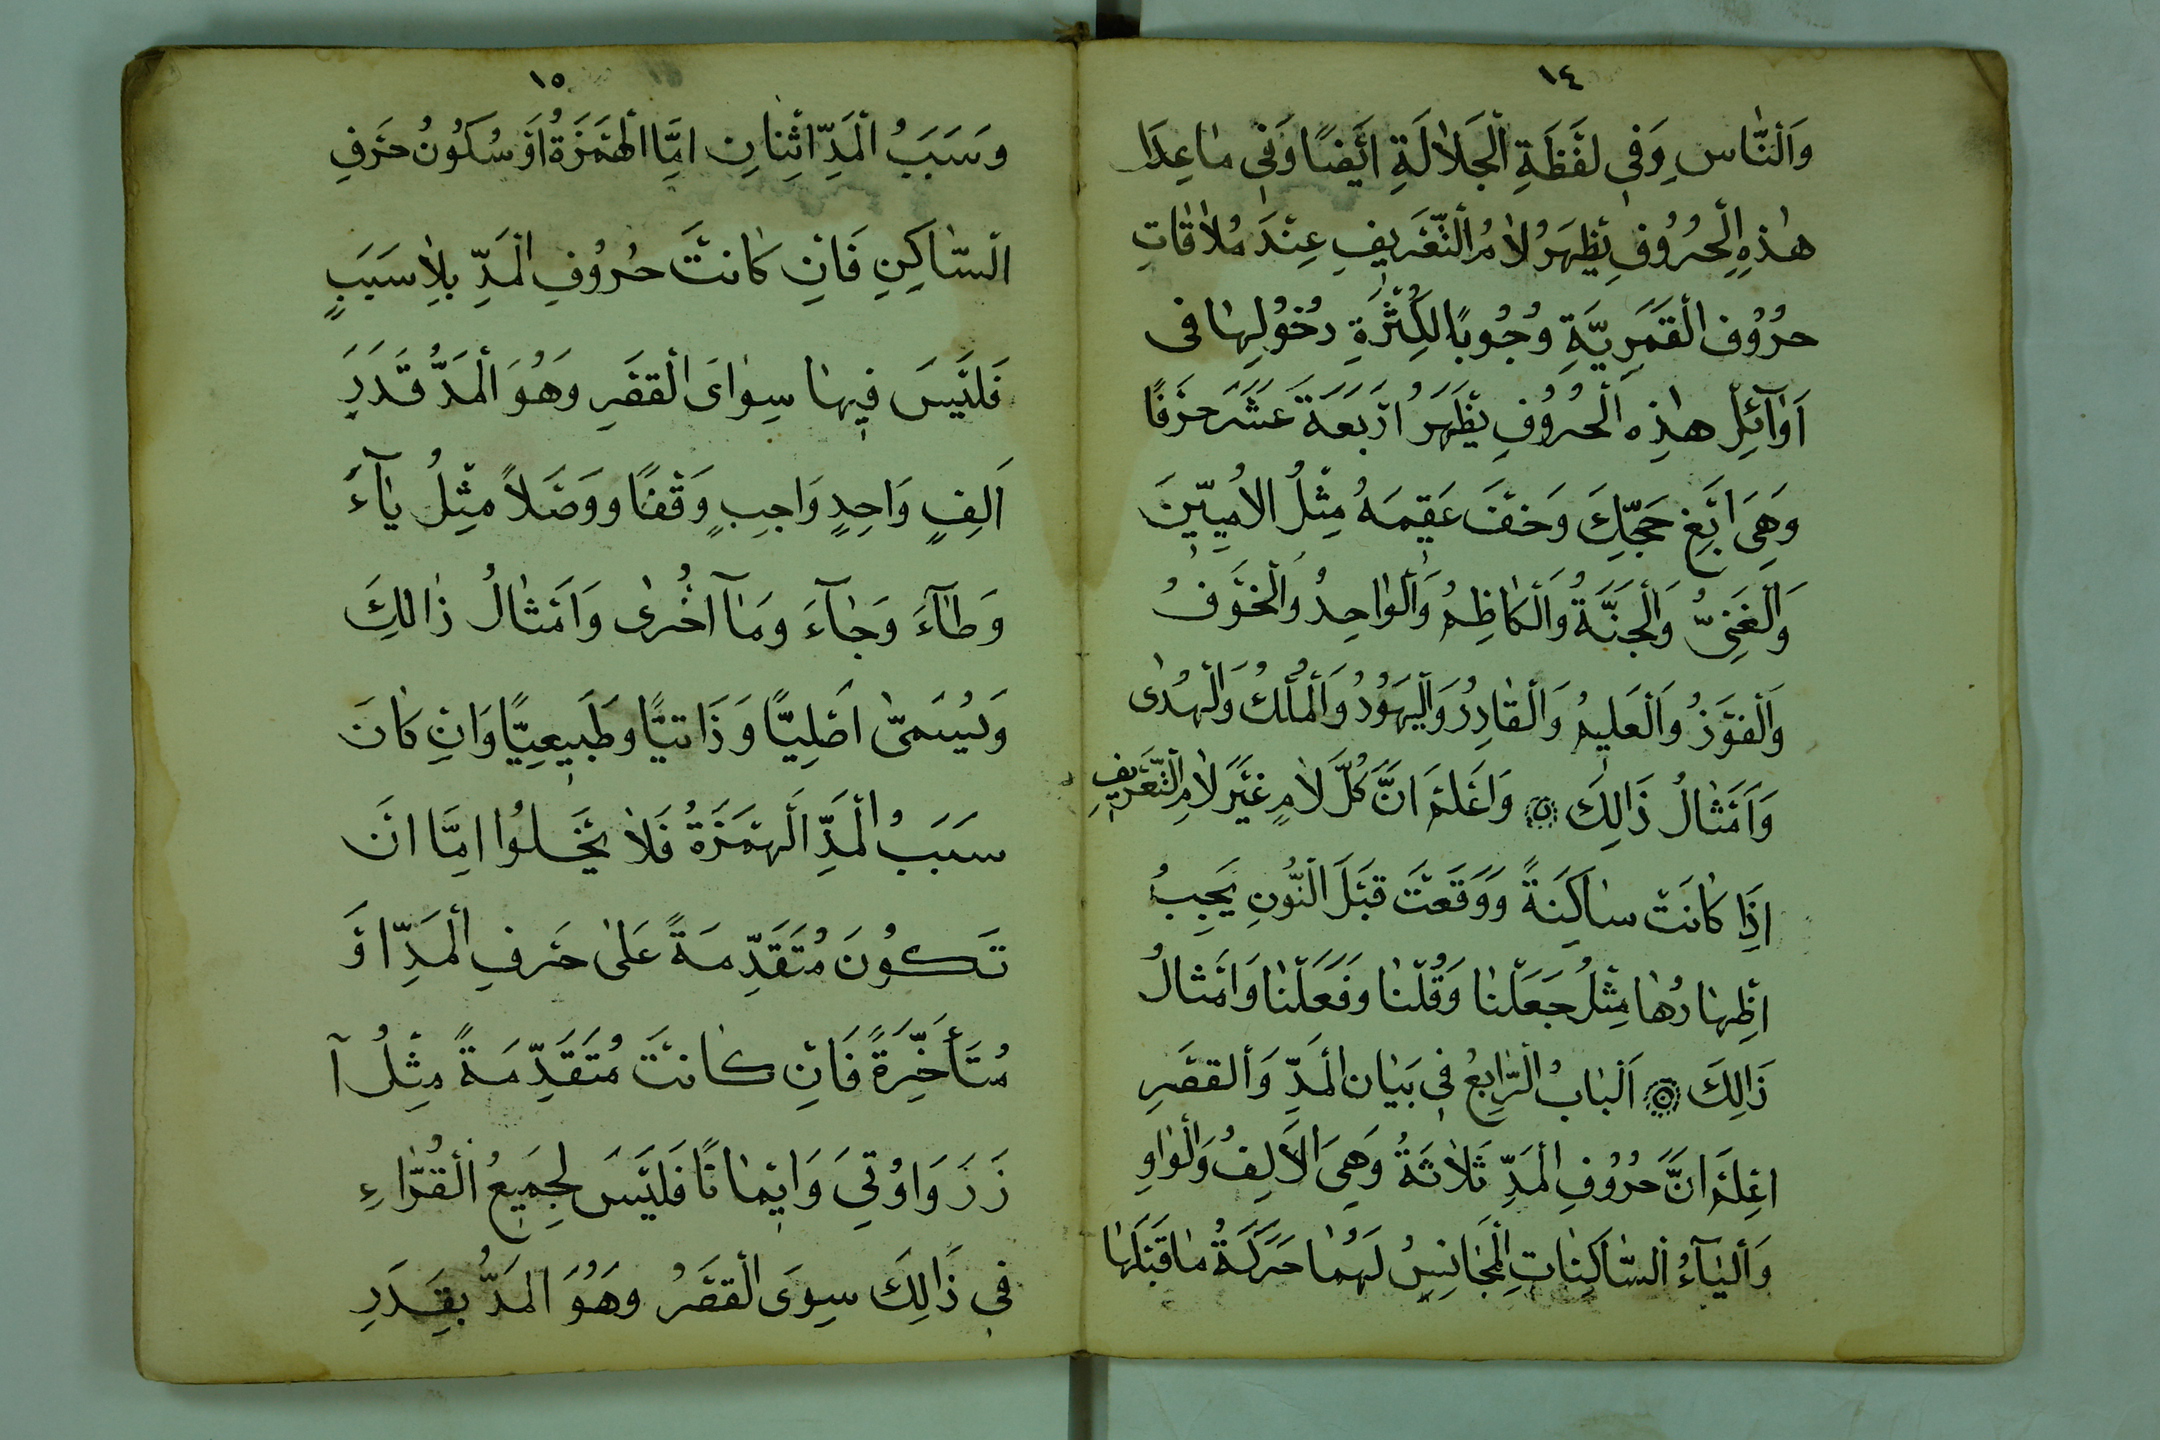 ١٤
وَالنَّاسِ وَفِى لَفْظَةِ الْجَلَالَةِ اَيْضًا وَفِى مَاعِدَا
هٰذِهِ الْحُرُوُفِ يَظْهَرُ لَامُ التَّعْرِيفِ عِنْدَ مُلَاقَاتِ
حُرُوُفِ الْقَمَرِيَّةِ وُجُوبًا لِكَثْرَةِ دُخُوُلِهَا فى
اَوَآئِلِ هٰذِهِ الْحُرُوُفِ يَظْهَرُ اَرْبَعَةَ عَشَرَ حَرْفًا
وَهِىَ اَبْغِ حَجَّكَ وَخَفْ عَقِيمَهُ مِثْلُ الْاُمِيّيِنَ
وَالْغَنِىُّ وَالْجَنَّةُ وَالْكَاظِمُ وَالْوَاحِدُ وَالْخَوْفُ
وَالْفَوْزُ وَالْعَلِيمُ وَالْقَادِرُ وَالْيَهُوُدُ وَالْمُلْكُ وَالْهُدٰى
وَاَمْثَالُ ذَالِكَ ۞ وَاعْلَمْ اَنَّ كُلَّ لَامٍ غَيْرَ لَامِ التَّعْرِيفِ
اِذَا كَانَتْ سَاكِنَةً وَوَقَعَتْ قَبْلَ النُّونِ يَجِبُ
اِظْهَارُهَا مِثْلُ جَعَلْنَا وَقُلْنَا وَفَعَلْنَا وَاَمْثَالُ
ذَالِكَ ۞ اَلْبَابُ الرَّابِعُ فِى بَيَانِ الْمَدِّ وَالْقَصْرِ
اِعْلَمْ اَنَّ حُرُوُفِ الْمَدِّ ثَلَاثَةُ وَهِىَ الْاَلِفُ وَالْوَاوِ
وَالْيَآءُ السَّاكِنَاتِ الْمُجَانِسُ لَهُمَا حَرَكَةُ مَاقَبْلَهَا
١٥
وَسَبَبُ الْمَدِّ اثْنَانِ اِمَّا الْهَمْزَةُ اَوْ سُكُونُ حَرْفِ
السَّاكِنِ فَاِنْ كَانَتْ حُرُوُفِ الْمَدِّ بِلَا سَبَبٍ
فَلَيْسَ فِيهَا سِوَاىَ الْقَصْرِ وَهُوَ الْمَدُّ قَدَرَ
اَلِفٍ وَاحِدٍ وَاجِبٍ وَقْفًا وَوَصْلًا مِثْلُ يَآءَ
وَطَآءَ وَجَآءَ وَمَآ اُخْرٰى وَاَمْثَالُ ذَالِكَ
وَيُسَمّٰى اَصْلِيًّا وَذَاتيًّا وَطَبِيعِيًّا وَاِنْ كَانَ
سَبَبُ الْمَدِّ الْهَمْزَةُ فَلَا يَخْلُوا اِمَّا اَنْ
تَكُونَ مُتَقَدِّمَةً عَلٰى حَرْفِ الْمَدِّ اَوْ
مُتَأَخِّرَةً فَاِنْ كَانَتْ مُتَقَدِّمَةً مِثْلُ آ
زَرَ وَاُوُتِىَ وَاِيْمَانًا فَلَيْسَ لِجَمِيعِ الْقُرَّاءِ
فِى ذَالِكَ سِوَى الْقَصْرُ وَهُوَ الْمَدُّ بِقَدَرِ